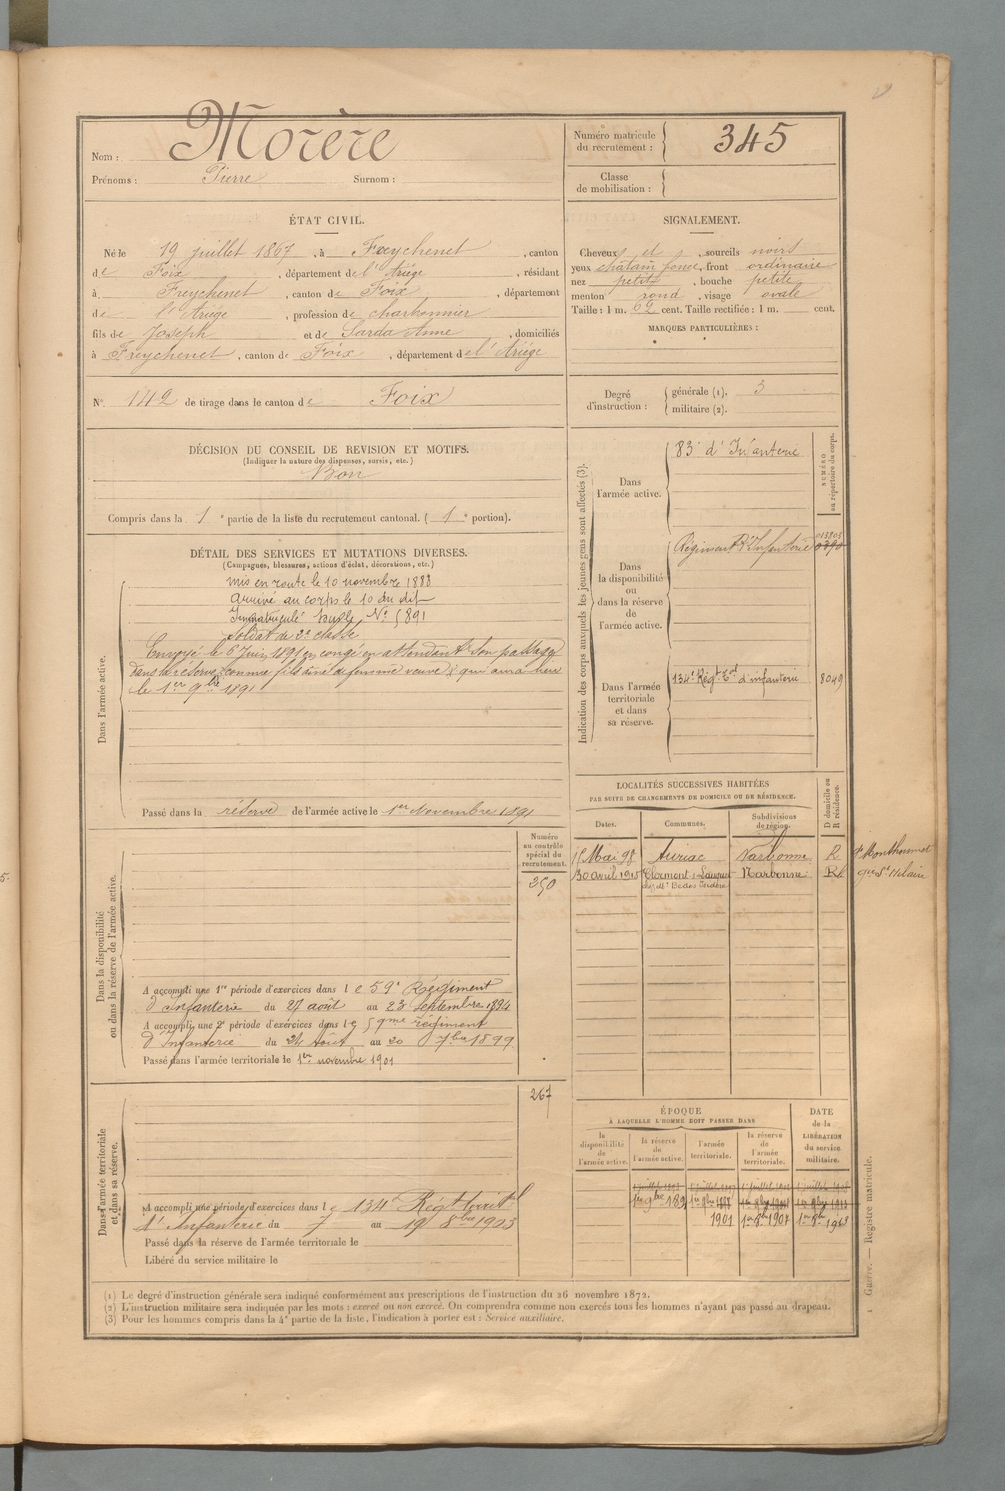 Nom : Morère
Prénoms : Pierre Surnom :
Numéro matricule du recrutement : 345
Classe de mobilisation :
ÉTAT CIVIL.
Né le 19 juillet 1867, à Freychenet, canton
de Foix, département de l'Ariége, résidant
à Freychenet, canton de Foix, département
de l'Ariege, profession de charbonnier
fils de Joseph et de Sarda Anne, domiciliés
à Freychenet, canton de Foix, département de l'Ariége
N° 142 de tirage dans le canton de Foix
SIGNALEMENT.
Cheveux et , sourcils noirs
yeux chatain foncé, front ordinaire
nez petit, bouche petite
menton rond, visage ovale
Taille : 1 m. 62 cent. Taille rectifiée : 1 m. cent.
MARQUES PARTICULIÈRES :
Degré d'instruction : générale (1). 3
militaire (2).
DÉCISION DU CONSEIL DE REVISION ET MOTIFS.
(Indiquer la nature des dispenses, sursis, etc.)
Bon
Compris dans la 1e partie de la liste du recrutement cantonal. ( 1e portion).
DÉTAIL DES SERVICES ET MUTATIONS DIVERSES.
(Campagnes, blessures, actions d'éclat, décorations, etc.)
Dans l'armée active.
Mis en route le 10 novembre 1888
Arrivé au corps le 10 du dit
Immatriculé sous le N° 5891
Soldat de 2e classe
Envoyé le 6 Juin 1891 en congé en attendant son passage
dans la réserve, comme fils ainé de femme veuve ; qui aura lieu
le 1er 9bre 1891
Passé dans la réserve de l'armée active le 1er Novembre 1891
Indication des corps auxquels les jeunes gens sont affectés (3).
NUMÉRO au répertoire du corps.
Dans l'armée active.
83e d'Infanterie
Dans la disponibilité ou dans la réserve de l'armée active.
Régiment d'Infanterie
Dans l'armée territoriale et dans sa réserve.
134e Régt Tal d'infanterie 8049
LOCALITÉS SUCCESSIVES HABITÉES
PAR SUITE DE CHANGEMENTS DE DOMICILE OU DE RÉSIDENCE.
Dates. Communes. Subdivisions de région. D domicile ou R résidence.
15 Mai 98 Auriac Narbonne R Mouthoumet
30 avril 1905 Clermont s Lauquet Narbonne R St Hilaire
Dans la disponibilité ou dans la réserve de l'armée active.
Numéro au contrôle spécial du recrutement.
250
A accompli une 1re période d'exercices dans le 59e Régiment
d'Infanterie du 27 août au 23 Septembre 1894
A accompli une 2e période d'exercices dans le 59me régiment
d'Infanterie du 24 Août au 20 7bre 1899
Passé dans l'armée territoriale le 1er novembre 1901
Dans l'armée territoriale et dans sa réserve.
267
A accompli une période d'exercices dans le 134e Régt territal
d'Infanterie du 7 au 19 8bre 1903
Passé dans la réserve de l'armée territoriale le
Libéré du service militaire le
ÉPOQUE
À LAQUELLE L'HOMME DOIT PASSER DANS
la disponibilité de l'armée active.
la réserve de l'armée active.
l'armée territoriale.
la réserve de l'armée territoriale.
DATE de la LIBÉRATION du service militaire.
1er 9bre 1891
1901 1er 8bre 1907 1er 8bre 1913
(1) Le degré d'instruction générale sera indiqué conformément aux prescriptions de l'instruction du 26 novembre 1872.
(2) L'instruction militaire sera indiquée par les mots : exercé ou non exercé. On comprendra comme non exercés tous les hommes n'ayant pas passé au drapeau.
(3) Pour les hommes compris dans la 4e partie de la liste, l'indication à porter est : Service auxiliaire.
1 Guerre. — Registre matricule.